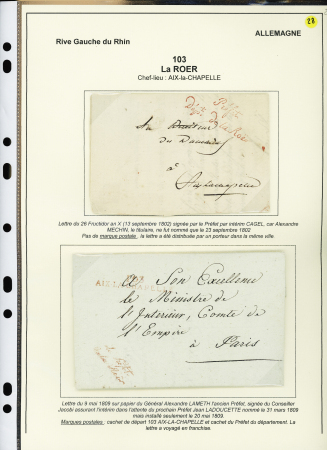 28
ALLEMAGNE
Rive Gauche du Rhin
103
La ROER
Chef-lieu : AIX-la-CHAPELLE
Préfet
Dépt. de la Roer
Au Directeur
des Domaines
à
Aixlachapelle
Lettre du 26 Fructidor an X (13 septembre 1802) signée par le Préfet par intérim CAGEL, car Alexandre
MECHIN, le titulaire, ne fut nommé que le 23 septembre 1802
Pas de marque postale : la lettre a été distribuée par un porteur dans la même ville
103
AIX-LA-CHAPELLE
A Son Excellence
le Ministre de
l'Interieur, Comte de
l'Empire
à Paris
Lettre du 8 mai 1809 sur papier du Général Alexandre LAMETH l'ancien Préfet, signée du Conseiller
Jacobi assurant l'intérim dans l'attente du prochain Préfet Jean LADOUCETTE nommé le 31 mars 1809
mais installé seulement le 20 mai 1809.
Marques postales : cachet de départ 103 AIX-LA-CHAPELLE et cachet du Préfet du département. La
lettre a voyagé en franchise.